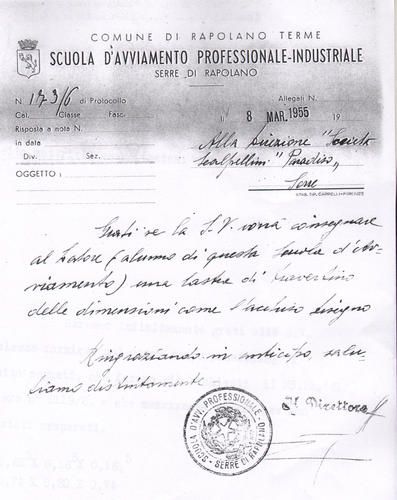 COMUNE DI RAPOLANO TERME
SCUOLA D'AVVIAMENTO PROFESSIONALE-INDUSTRIALE
SERRE DI RAPOLANO
N. 173/6 di Protocollo
Cat. Classe Fasc.
Risposta a nota N.
in data
Div. Sez.
OGGETTO:
Allegati N.
lì 8 MAR. 1955 19
Alla Direzione "Società
Scalpellini" Paradiso,,
Serre
STAB. TIP. CAPPELLI - FIRENZE
Grati se la S.V. vorrà consegnare
al latore (alunno di questa Scuola d'Av-
viamento) una lastra di travertino
delle dimensioni come l'accluso disegno
Ringraziando in anticipo, salu-
tiamo distintamente
Il Direttore
SCUOLA D'AVV. PROFESSIONALE
SERRE DI RAPOLANO